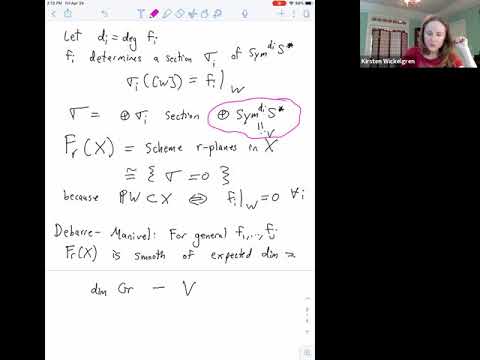 2:13 PM Fri Apr 24
86%
Let di = deg fi
fi determines a section σi of Sym^di S*
σi([W]) = fi|W
σ = ⊕ σi section ⊕ Sym^di S*
= V
Fr(X) = scheme r-planes in X
≅ { σ = 0 }
because PW ⊂ X ⇔ fi|W = 0 ∀i
Debarre-Manivel: For general f1,..., fj
Fr(X) is smooth of expected dim =
dim Gr - V
Kirsten Wickelgren